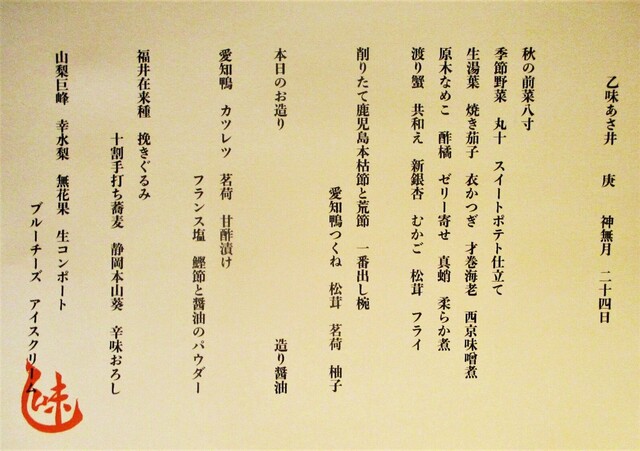 乙味あさ井　庚　神無月　二十四日
秋の前菜八寸
季節野菜　丸十　スイートポテト仕立て
生湯葉　焼き茄子　衣かつぎ　才巻海老　西京味噌煮
原木なめこ　酢橘　ゼリー寄せ　真蛸　柔らか煮
渡り蟹　共和え　新銀杏　むかご　松茸　フライ
削りたて鹿児島本枯節と荒節　一番出し椀
愛知鴨つくね　松茸　茗荷　柚子
本日のお造り　造り醤油
愛知鴨　カツレツ　茗荷　甘酢漬け
フランス塩　鰹節と醤油のパウダー
福井在来種　挽きぐるみ
十割手打ち蕎麦　静岡本山葵　辛味おろし
山梨巨峰　幸水梨　無花果　生コンポート
ブルーチーズ　アイスクリーム
味